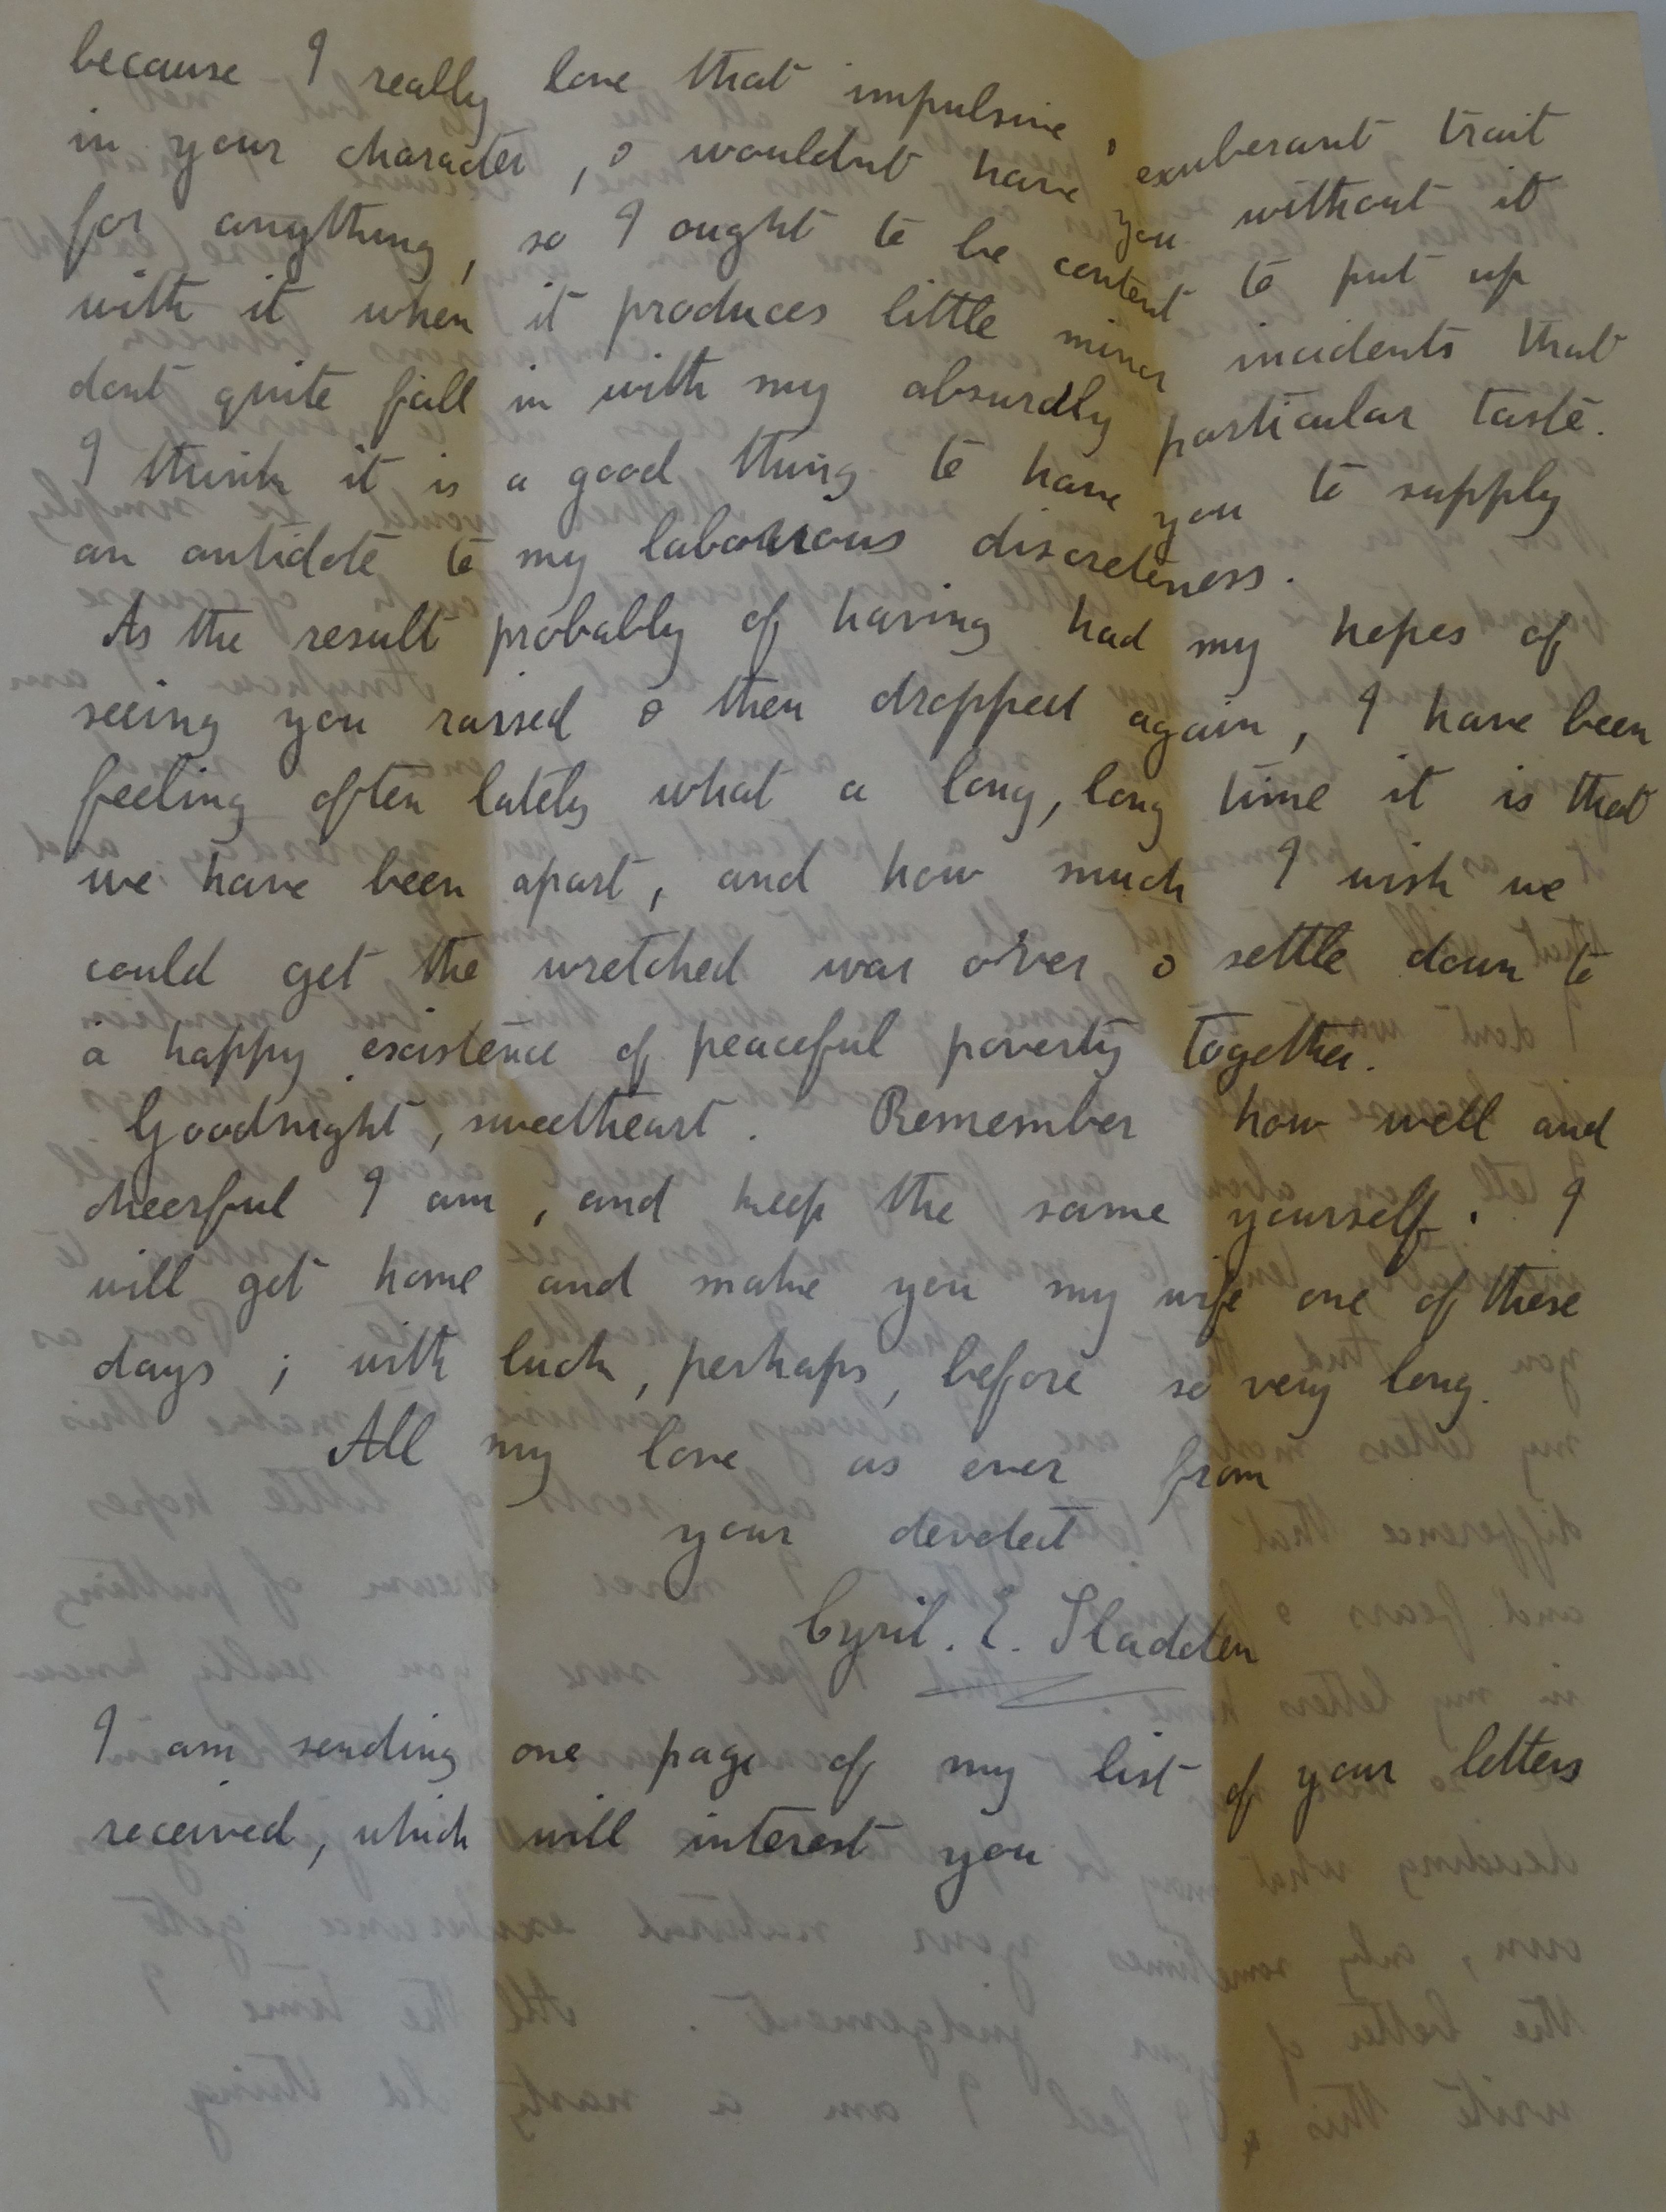 because I really love that impulsive & exuberant trait
in your character, & wouldnt have you without it
for anything, so I ought to be content to put up
with it when it produces little minor incidents that
dont quite fall in with my absurdly particular taste.
I think it is a good thing to have you to supply
an antidote to my labourous discreteness.
As the result probably of having had my hopes of
seeing you raised & then dropped again, I have been
feeling often lately what a long, long time it is that
we have been apart, and how much I wish we
could get the wretched war over & settle down to
a happy existence of peaceful poverty together.
Goodnight, sweetheart. Remember how well and
cheerful I am, and keep the same yourself. I
will get home and make you my wife one of these
days; with luck, perhaps, before so very long.
All my love as ever from
your devoted
Cyril. E. Sladden
I am sending one page of my list of your letters
received, which will interest you